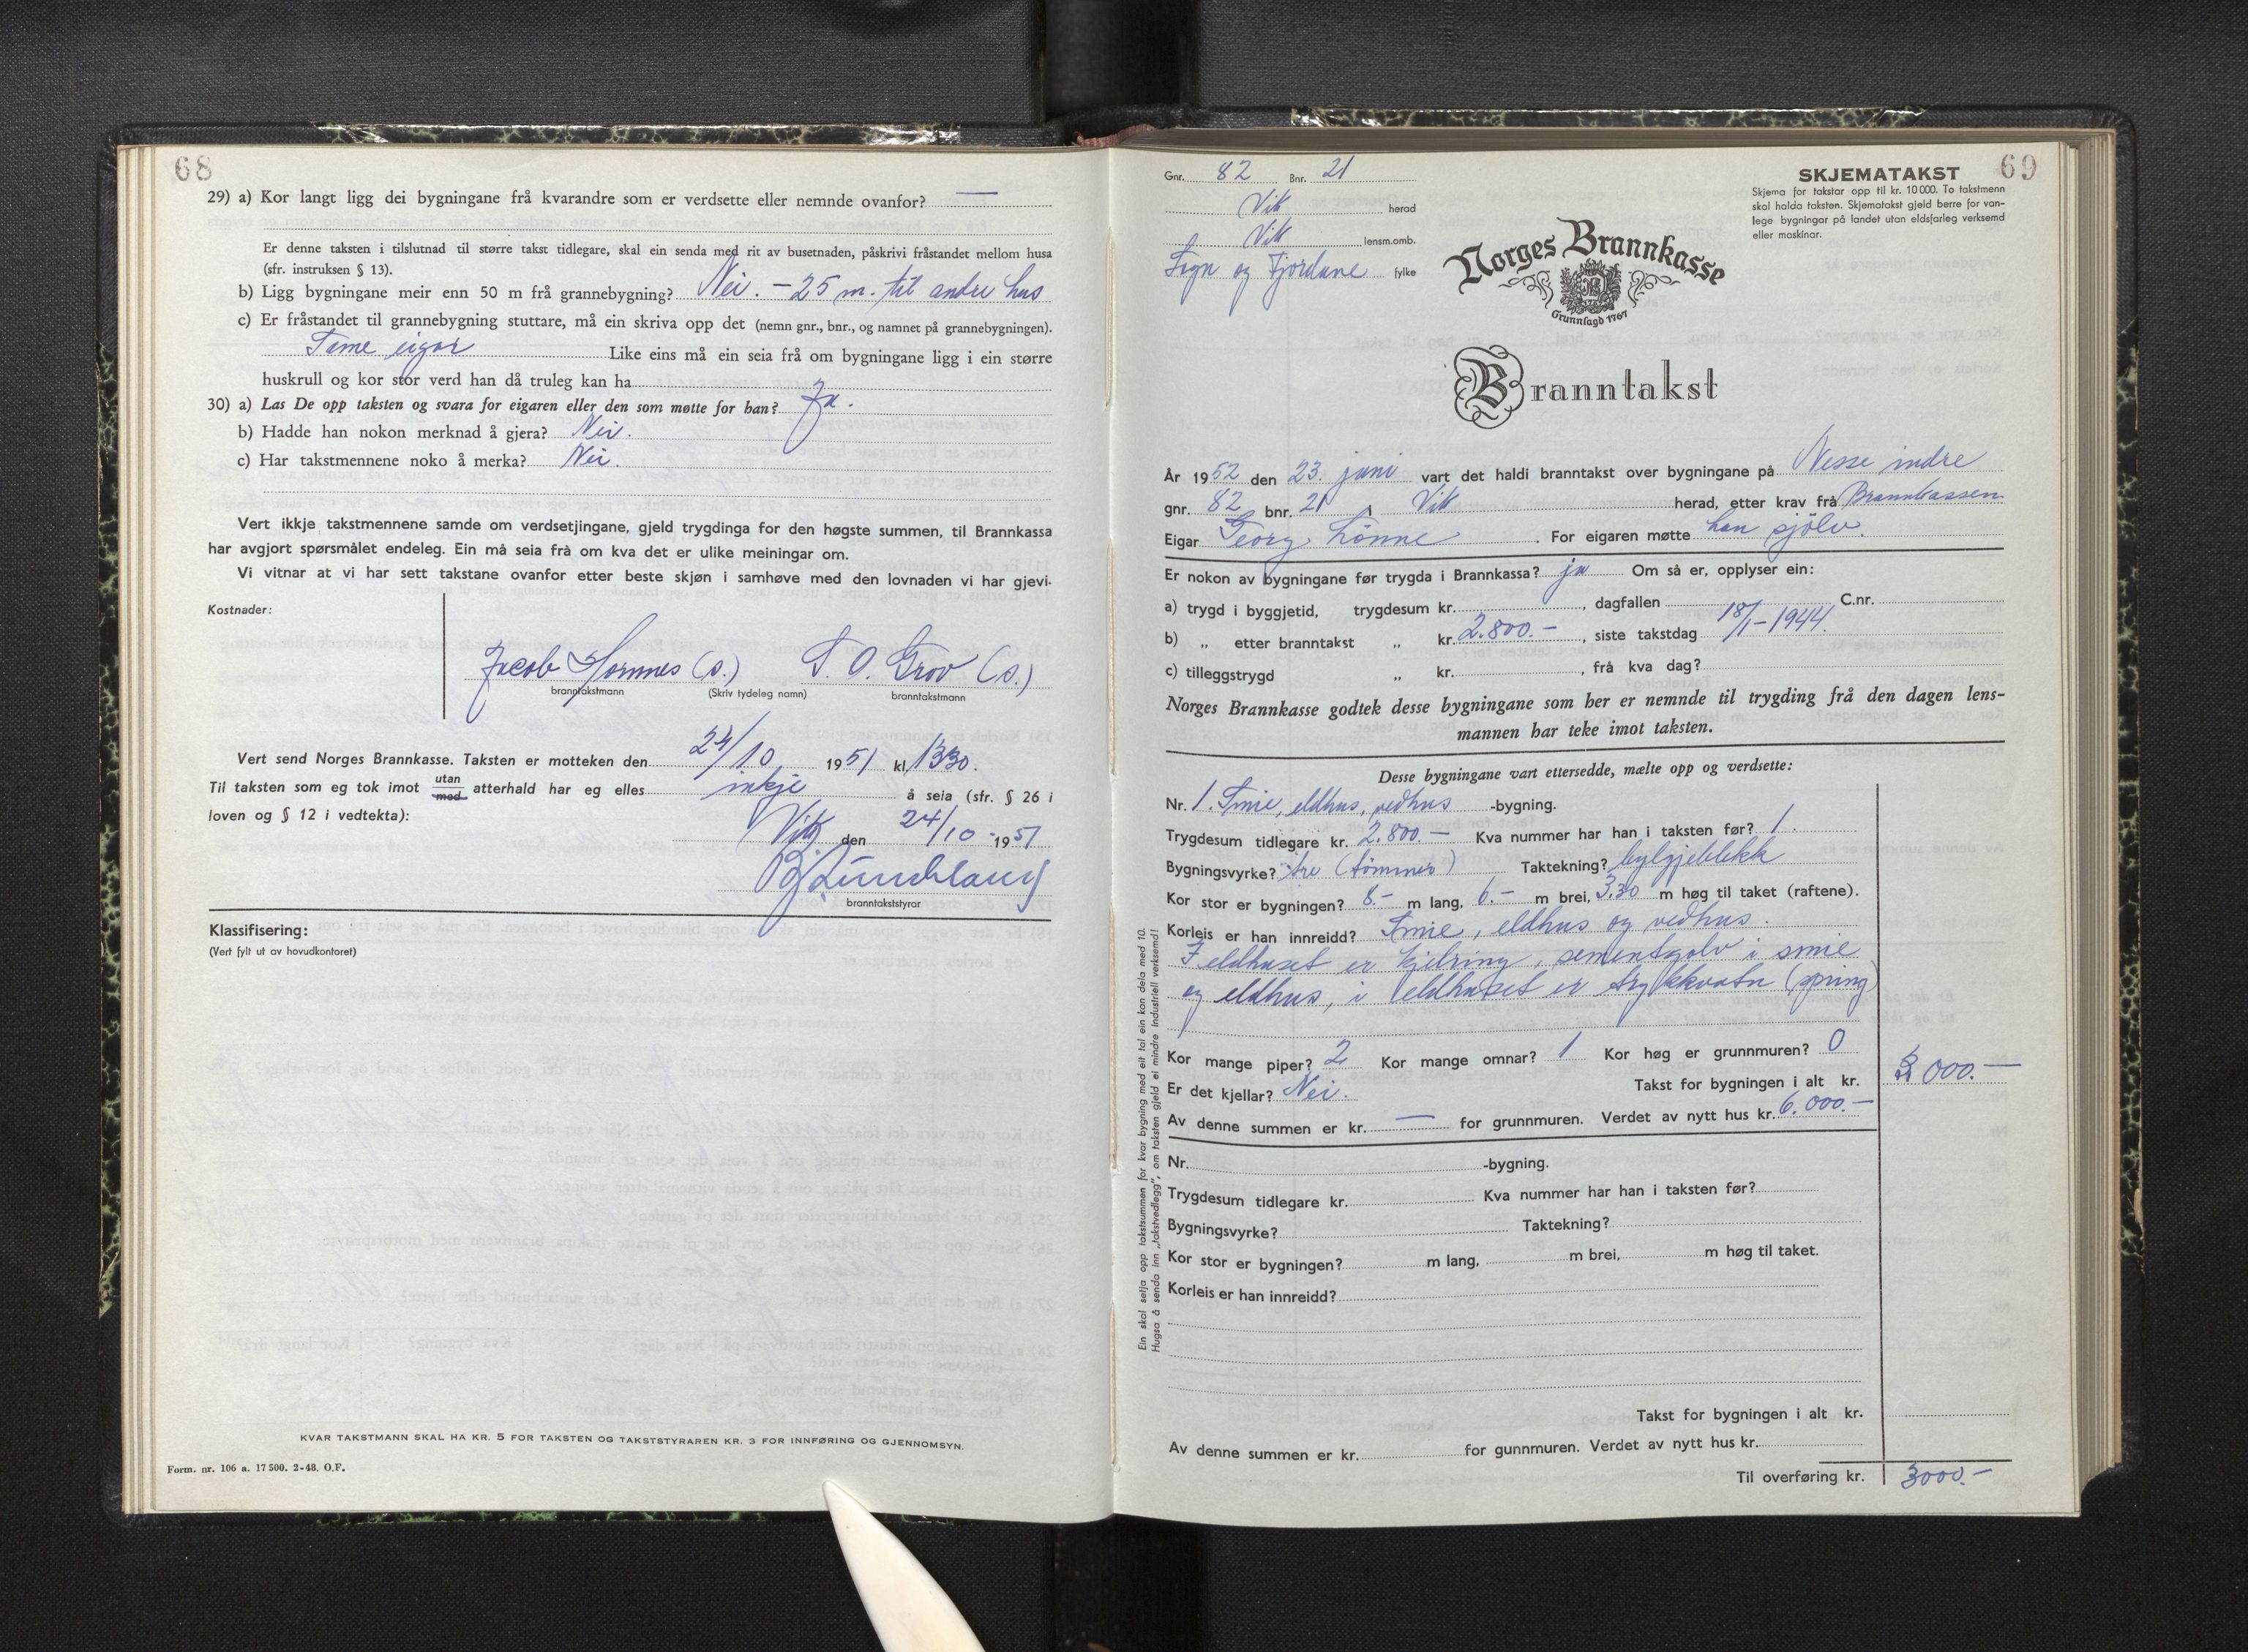 68
29) a) Kor langt ligg dei bygningane frå kvarandre som er verdsette eller nemnde ovanfor? —
Er denne taksten i tilslutnad til større takst tidlegare, skal ein senda med rit av busetnaden, påskrivi fråstandet mellom husa
(sfr. instruksen § 13).
b) Ligg bygningane meir enn 50 m frå grannebygning? Nei. – 25 m. til andre hus
c) Er fråstandet til grannebygning stuttare, må ein skriva opp det (nemn gnr., bnr., og namnet på grannebygningen).
Same eigar Like eins må ein seia frå om bygningane ligg i ein større
huskrull og kor stor verd han då truleg kan ha
30) a) Las De opp taksten og svara for eigaren eller den som møtte for han? Ja.
b) Hadde han nokon merknad å gjera? Nei.
c) Har takstmennene noko å merka? Nei.
Vert ikkje takstmennene samde om verdsetjingane, gjeld trygdinga for den høgste summen, til Brannkassa
har avgjort spørsmålet endeleg. Ein må seia frå om kva det er ulike meiningar om.
Vi vitnar at vi har sett takstane ovanfor etter beste skjøn i samhøve med den lovnaden vi har gjevi.
Kostnader:
Jacob Hornnes (s.) S. O. Grov (s.)
branntakstmann (Skriv tydeleg namn) branntakstmann
Vert send Norges Brannkasse. Taksten er motteken den 24/10 1951 kl. 1330.
Til taksten som eg tok imot utan/med atterhald har eg elles inkje å seia (sfr. § 26 i
loven og § 12 i vedtekta):
Vik den 24/10 1951
branntakststyrar
Klassifisering:
(Vert fylt ut av hovudkontoret)
KVAR TAKSTMANN SKAL HA KR. 5 FOR TAKSTEN OG TAKSTSTYRAREN KR. 3 FOR INNFØRING OG GJENNOMSYN.
Form. nr. 106 a. 17 500. 2-48. O.F.
69
Gnr. 82 Bnr. 21
Vik herad
Vik lensm.omb.
Sogn og Fjordane fylke
SKJEMATAKST
Skjema for takstar opp til kr. 10 000. To takstmenn
skal halda taksten. Skjematakst gjeld berre for van-
lege bygningar på landet utan eldsfarleg verksemd
eller maskinar.
Norges Brannkasse
Grunnlagd 1767
Branntakst
År 1952 den 23. juni vart det haldi branntakst over bygningane på Nesse indre
gnr. 82 bnr. 21 i Vik herad, etter krav frå Brannkassen
Eigar Georg Lønne. For eigaren møtte han sjölv.
Er nokon av bygningane før trygda i Brannkassa? ja Om så er, opplyser ein:
a) trygd i byggjetid, trygdesum kr. , dagfallen C.nr.
b) „ etter branntakst „ kr. 2.800.– , siste takstdag 18/1–1944.
c) tilleggstrygd „ kr. , frå kva dag?
Norges Brannkasse godtek desse bygningane som her er nemnde til trygding frå den dagen lens-
mannen har teke imot taksten.
Desse bygningane vart ettersedde, mælte opp og verdsette:
Nr. 1. Smie, eldhus, vedhus -bygning.
Trygdesum tidlegare kr. 2.800.— Kva nummer har han i taksten før? 1.
Bygningsvyrke? tre (tømmer) Taktekning? bylgjeblekk
Kor stor er bygningen? 8.– m lang, 6.– m brei, 3,30 m høg til taket (raftene).
Korleis er han innreidd? Smie, eldhus og vedhus.
I eldhuset er kjelring, sementgolv i smie
og eldhus, i eldhuset er trykkvatn (spring)
Kor mange piper? 2 Kor mange omnar? 1 Kor høg er grunnmuren? 0
Er det kjellar? Nei. Takst for bygningen i alt kr. 3000.—
Av denne summen er kr. — for grunnmuren. Verdet av nytt hus kr. 6.000.—
Nr. -bygning.
Trygdesum tidlegare kr. Kva nummer har han i taksten før?
Bygningsvyrke? Taktekning?
Kor stor er bygningen? m lang, m brei, m høg til taket.
Korleis er han innreidd?
Takst for bygningen i alt kr.
Av denne summen er kr. for gunnmuren. Verdet av nytt hus kr.
Til overføring kr. 3000.–
Ein skal setja opp takstsummen for kvar bygning med eit tal ein kan dela med 10.
Hugsa å senda inn „takstvedlegg", om taksten gjeld ei mindre industriell verksemd!